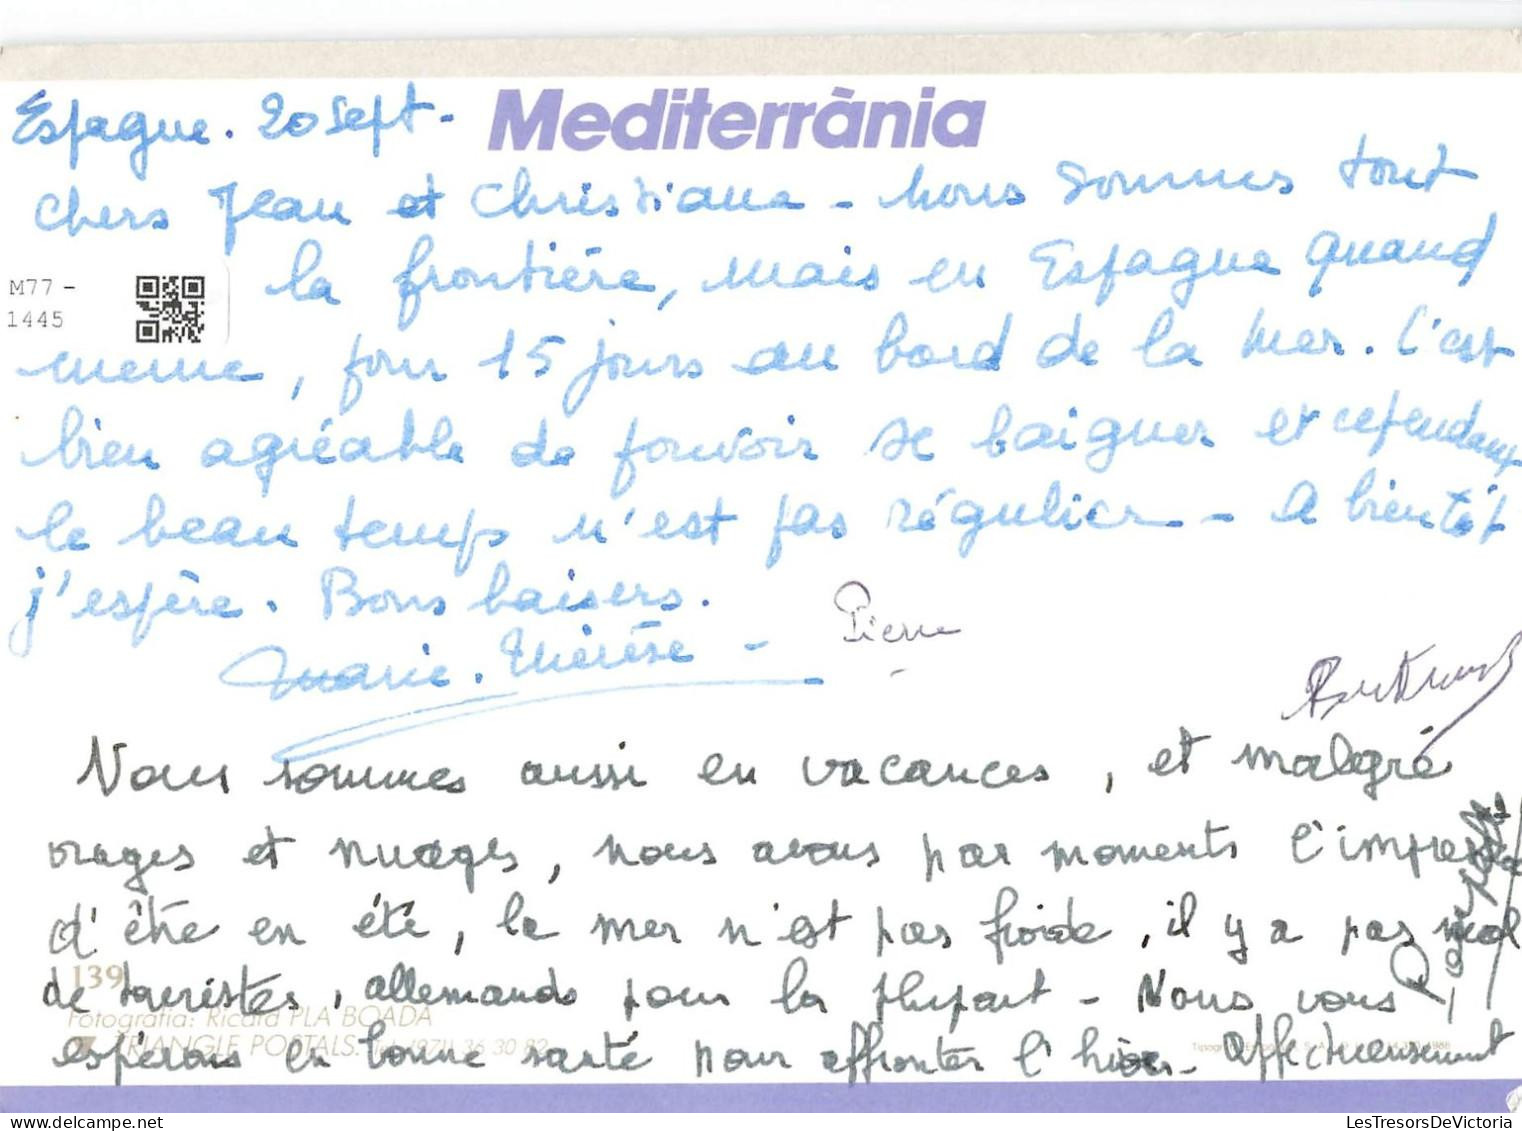 Mediterrània
Espagne. 20 Sept-
chers Jean et Christiane - Nous sommes tout
la frontière, mais en Espagne quand
meme, pour 15 jours au bord de la mer. C'est
bien agréable de pouvoir se baigner et cependant
le beau temps n'est pas régulier - A bientôt
j'espère. Bons baisers.
Marie. Thérèse -
Pierre
Bertrand
M77 -
1445
Nous sommes aussi en vacances, et malgré
orages et nuages, nous avons par moments l'impression
d'être en été, la mer n'est pas froide, il y a pas mal
de touristes, allemands pour la plupart - Nous vous
espérons en bonne santé pour affronter l'hiver - affectueusement
139
Fotografia: Ricard PLA BOADA
TRIANGLE POSTALS. Tel. (971) 36 30 82
LesTresorsDeVictoria
© www.delcampe.net